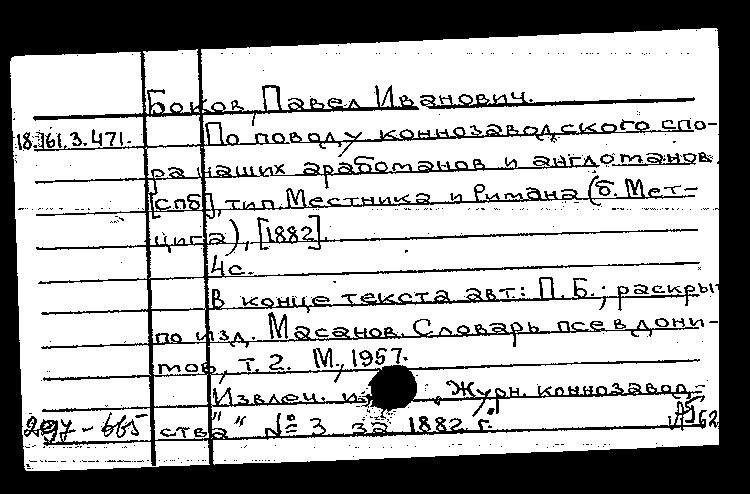 Боков, Павел Иванович.
18.161.3.471. По поводу коннозаводского спо-
ра наших арабоманов и англоманов.
[спб], тип. Местника и Римана (б. Мет-
цига), [1882].
4с.
В конце текста авт.: П.Б.; раскрыт
по изд. Масанов. Словарь псевдони-
мов, т. 2. М., 1957.
Извлеч. из „Журн. коннозавод-
297-665 ства" № 3 за 1882 г.